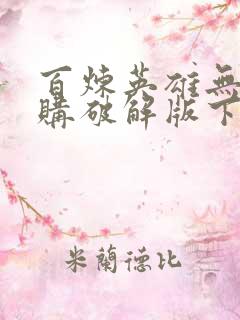 百煉英雄無
購破解版下
米蘭德比